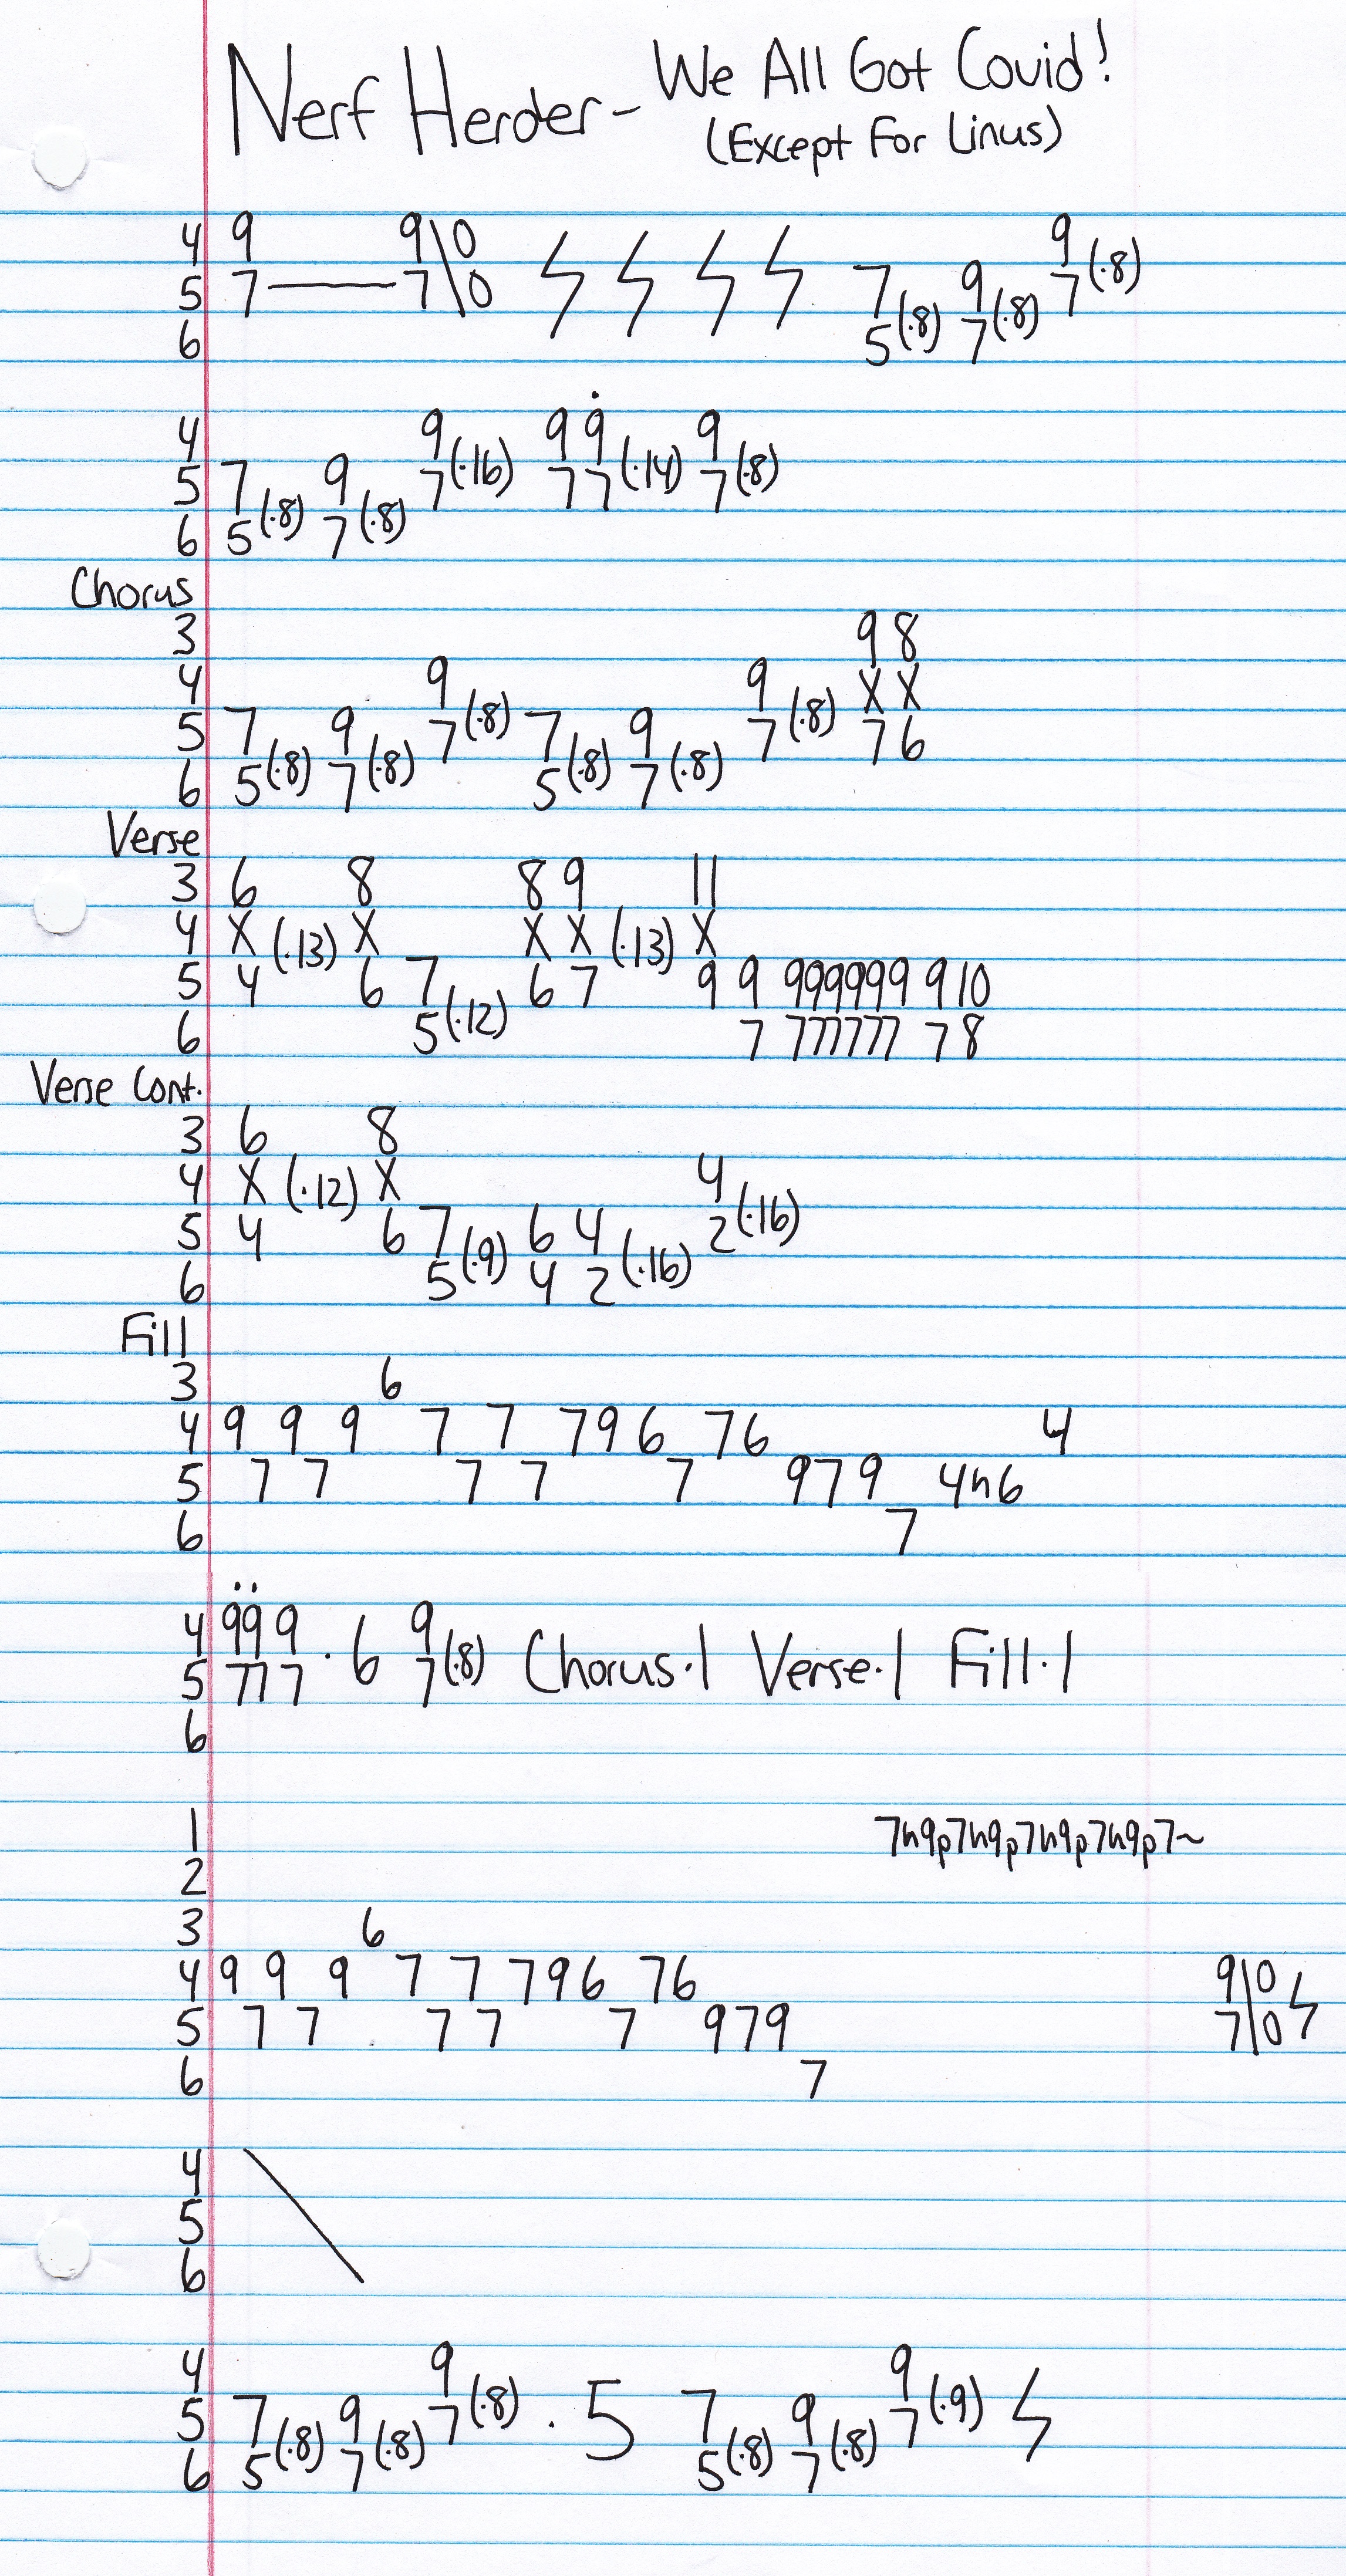 Nerf Herder - We All Got Covid!
(Except For Linus)
4 9 9\0
5 7——7\0 7 9 9 7 (.8)
6 5 (.8) 7 (.8)
4 9 9 9 9
5 7 9 7 (.16) 7 7 (.14) 7 (.8)
6 5 (.8) 7 (.8)
Chorus
3 9 8
4 9 9 X X
5 7 9 7 (.8) 7 9 7 (.8) 7 6
6 5 (.8) 7 (.8) 5 (.8) 7 (.8)
Verse
3 6 8 8 9 11
4 X (.13) X X X (.13) X
5 4 6 7 6 7 9 9 999999 9 10
6 5 (.12) 7 777777 7 8
Verse Cont.
3 6 8
4 X (.12) X 4
5 4 6 7 6 4 2 (.16)
6 5 (.9) 4 2 (.16)
Fill
3 6
4 9 9 9 7 7 7 9 6 7 6 4
5 7 7 7 7 7 9 7 9 4h6
6 7
4 9 9 9 . 6 9 Chorus.1 Verse.1 Fill.1
5 7 7 7 7 (.8)
6
1 7h9p7h9p7h9p7h9p7~
2
3 6
4 9 9 9 7 7 7 9 6 7 6 9\0
5 7 7 7 7 7 9 7 9 7\0
6 7
4
5
6
4 9 9
5 7 9 7 (.8) . 5 7 9 7 (.9)
6 5 (.8) 7 (.8) 5 (.8) 7 (.8)